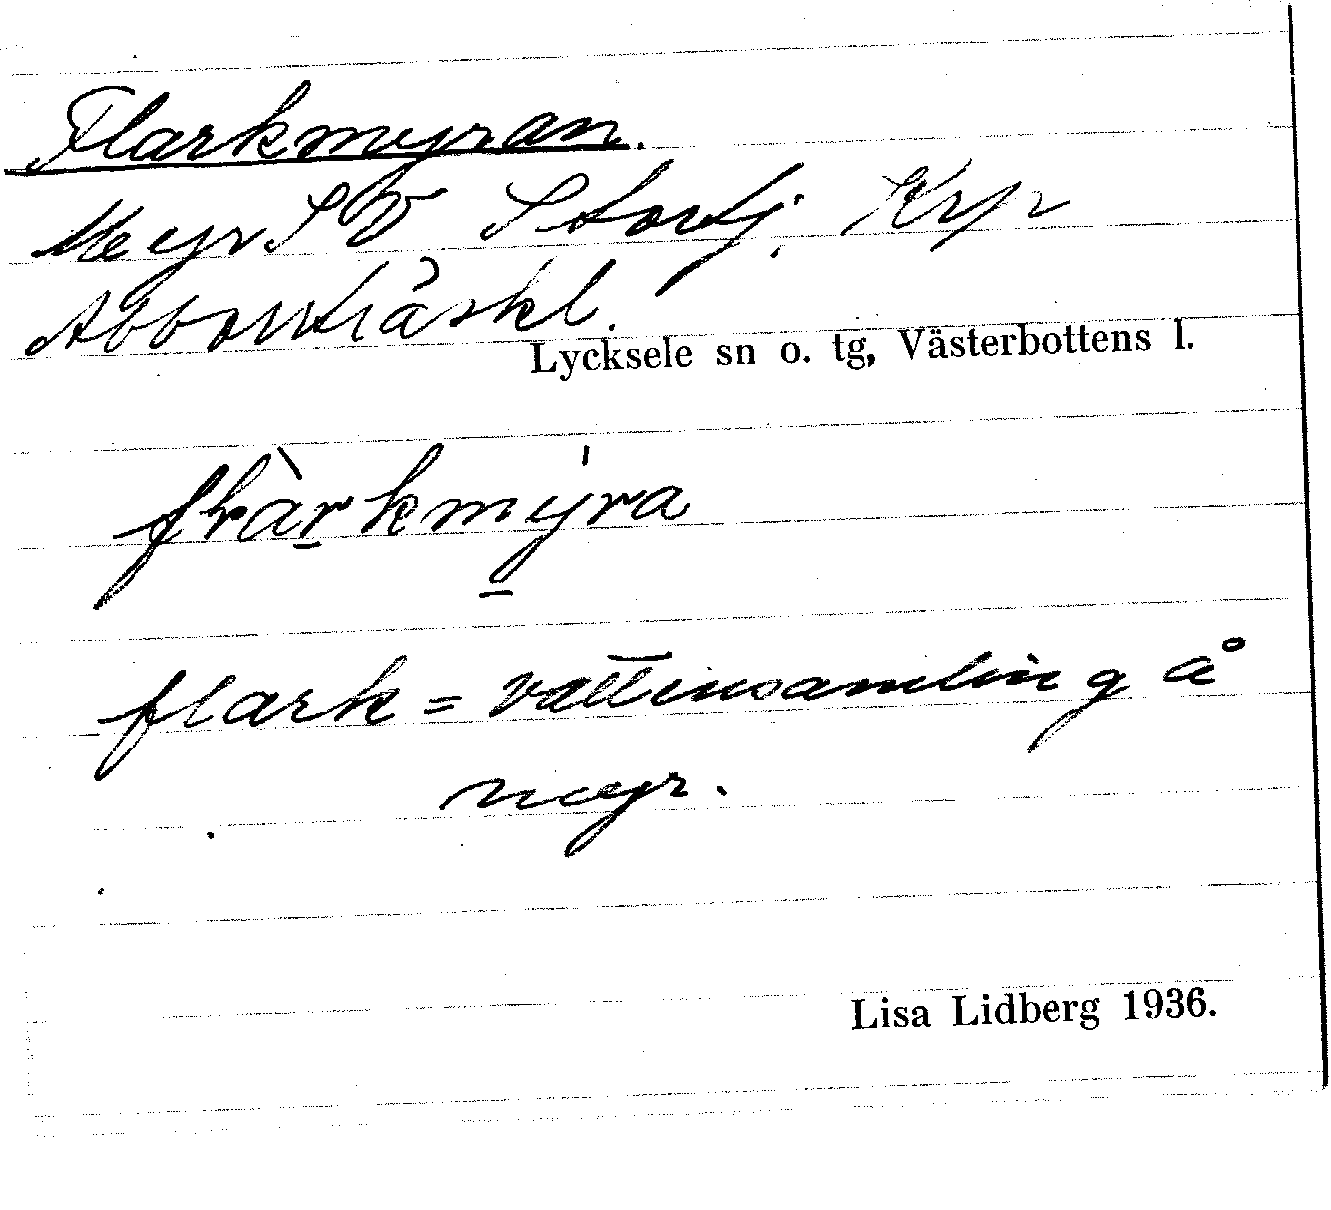 Flarkmyran.
Myr SV Stortj. Krp
Abborrträskl.
Lycksele sn o. tg, Västerbottens l.
flàrkmýra
flark = vattensamling å
myr.
Lisa Lidberg 1936.